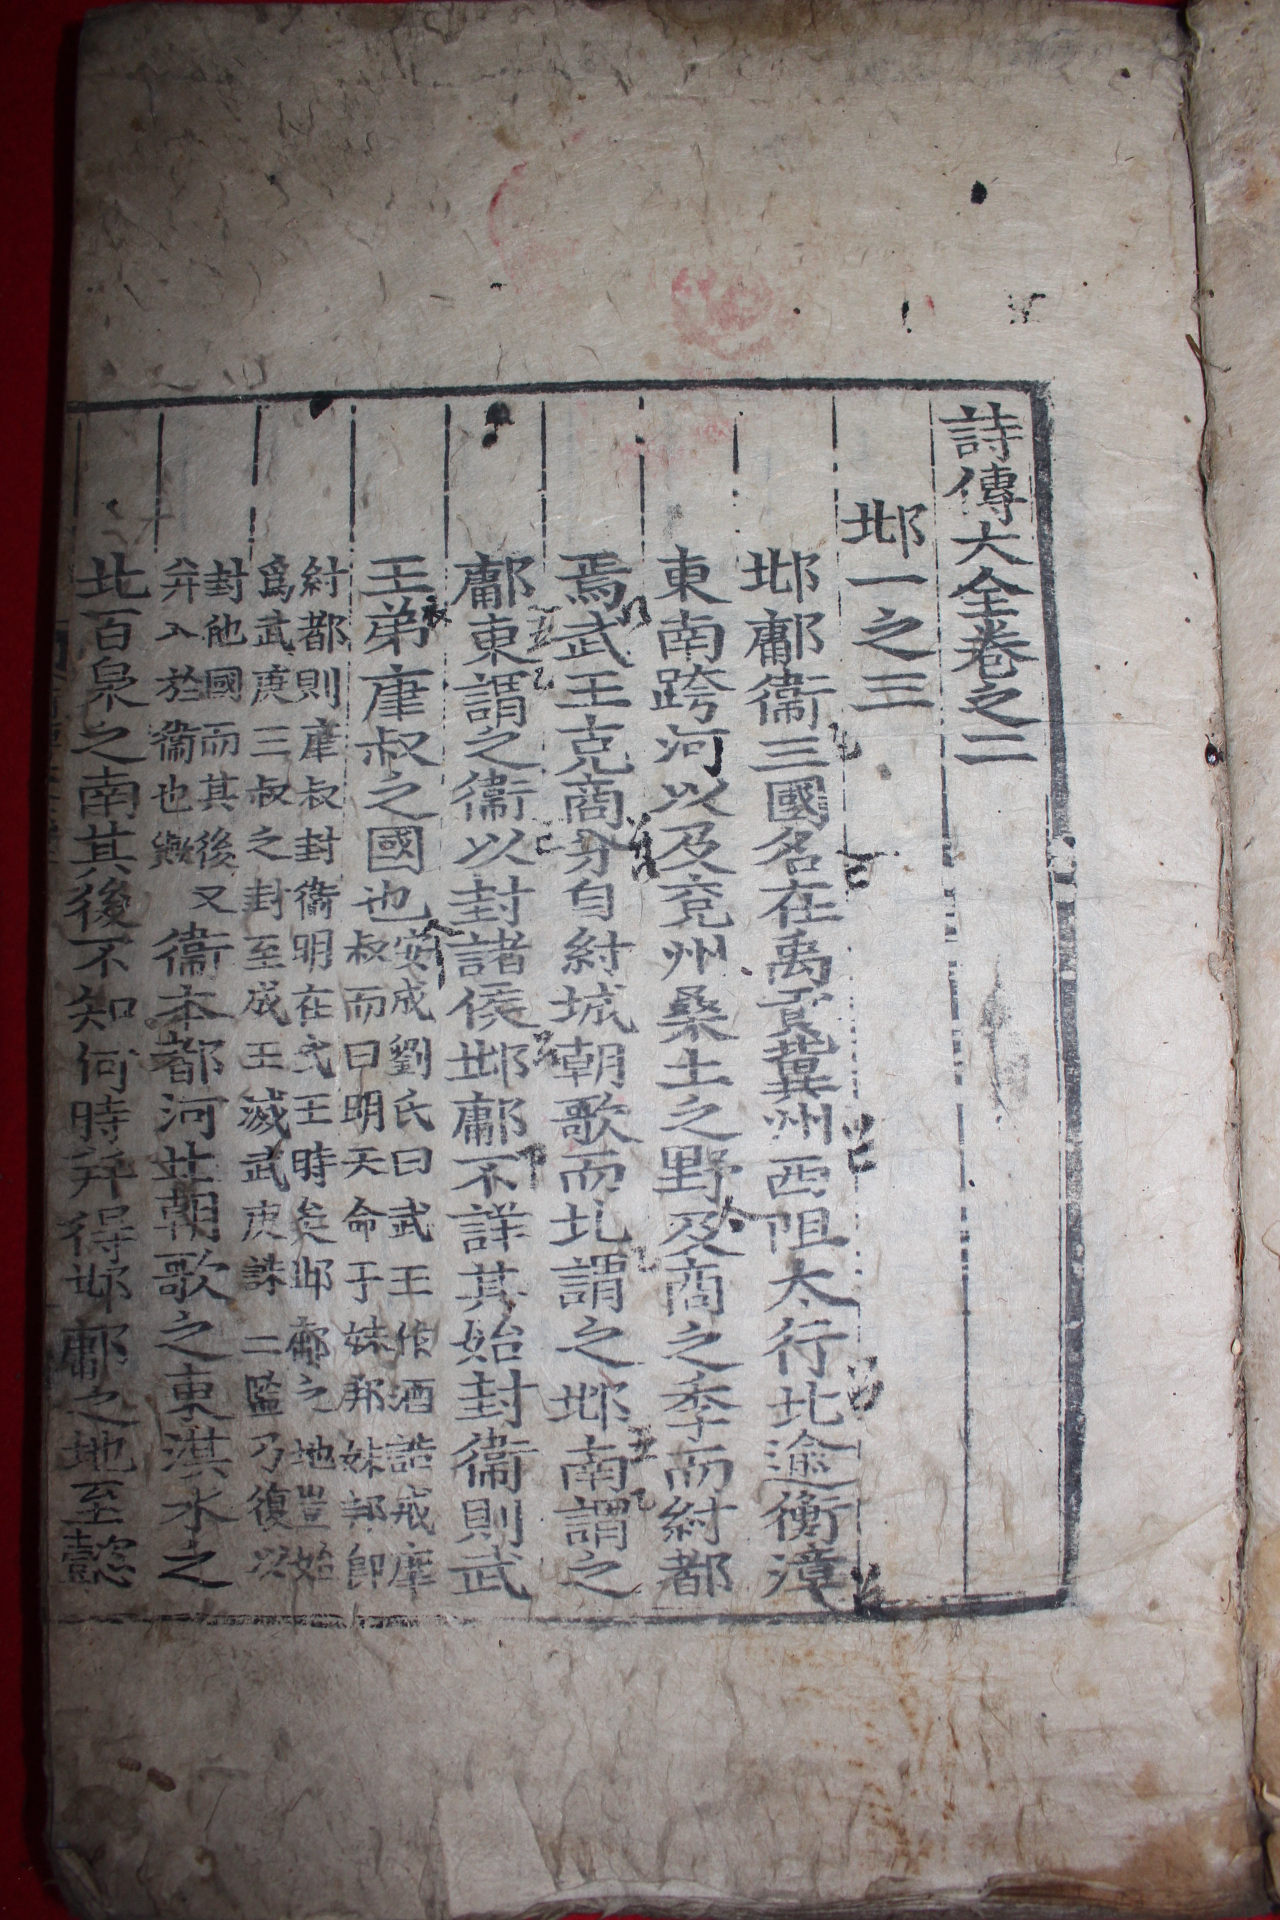 詩傳大全卷之二
邶一之三
邶鄘衞三國名在禹貢冀州西阻太行北逾衡漳
東南跨河以及兗州桑土之野及商之季而紂都
焉武王克商分自紂城朝歌而北謂之邶南謂之
鄘東謂之衞以封諸侯邶鄘不詳其始封衞則武
王弟康叔之國也
安成劉氏曰武王作酒誥戒康
叔而曰明大命于妹邦妹邦即
紂都則康叔封衞明在武王時矣邶鄘之地豈始
爲武庚三叔之封至成王滅武庚誅二監乃復以
封他國而其後又
幷入於衞也歟
衞本都河北朝歌之東淇水之
北百泉之南其後不知何時幷得邶鄘之地至懿